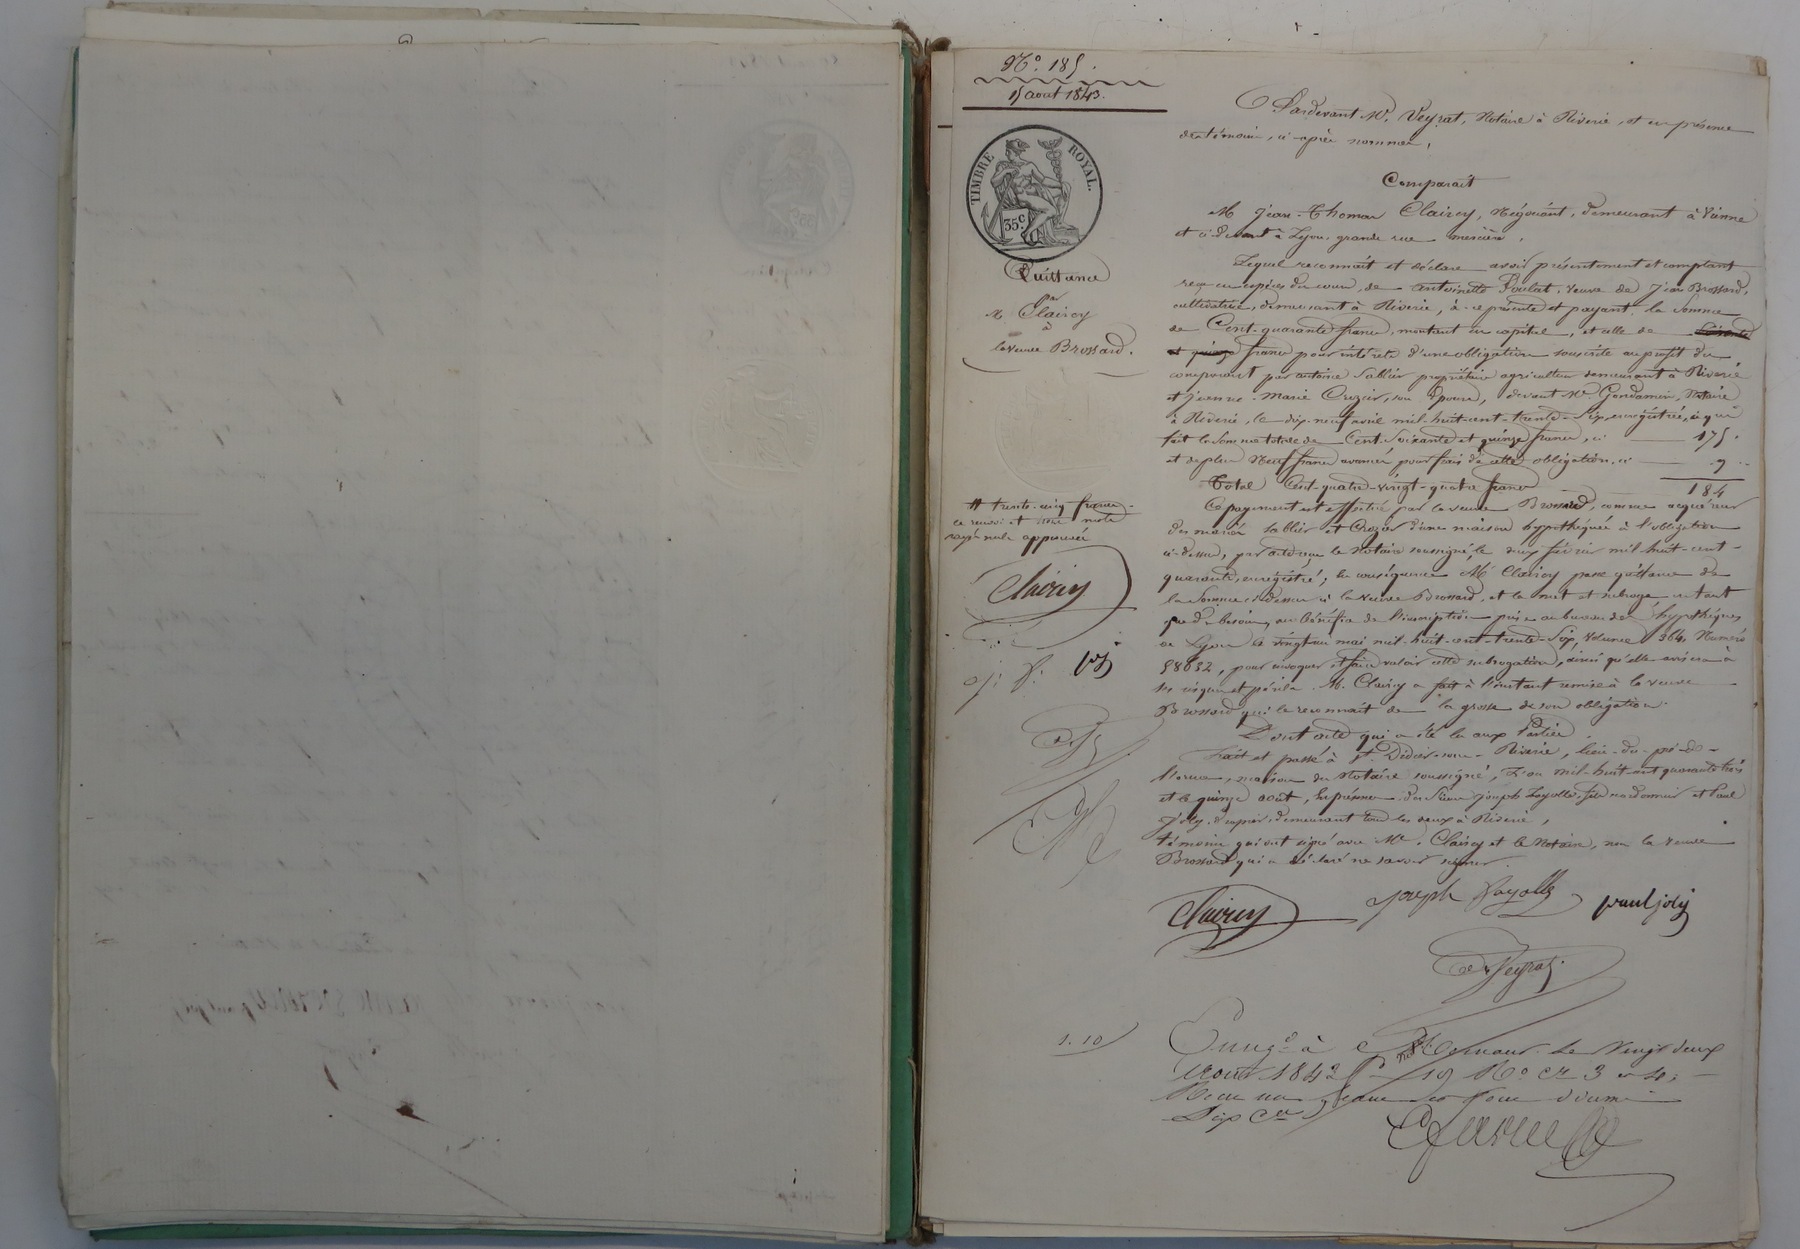 N.º 185.
15 aout 1843.
TIMBRE ROYAL.
35c
Quittance
par
M. Clairey
à
la veuve Brossard.
Pardevant Me. Veyrat, Notaire à Riverie, et en présence
des témoins, ci-après nommés,
Comparait
M. Jean-Thomas Clairey, Négociant, demeurant à Vienne
et ci-devant à Lyon, grande rue mercière,
Lequel reconnait et déclare avoir présentement et comptant
reçu en espèces du cours, de Antoinette Poulat, veuve de Jean Brossard,
cultivatrice, demeurant à Riverie, à ce présente et payant, la Somme
de Cent-quarante francs, montant en capital, et celle de
et quinze francs pour intérêts d'une obligation souscrite au profit du
comparant par antoine Sablier propriétaire agriculteur demeurant à Riverie
et Jeanne-Marie Crozier, son Epouse, devant Me. Gondamin, Notaire
à Riverie, le dix-neuf avril mil-huit-cent-trente-Six, enregistrée, ce qui
fait la Somme totale de Cent-Soixante et quinze francs, ci 175.
et de plus Neuf francs avancés pour frais de cette obligation, ci 9
Total Cent-quatre-vingt-quatre francs 184
Ce payement est effectué par la veuve Brossard, comme acquéreur
des mariés Sablier et Crozier d'une maison hypothéquée à l'obligation
ci-dessus, par acte reçu le Notaire soussigné, le deux février mil-huit-cent-
quarante, enregistré; en conséquence Mr Clairey passe quittance de
la Somme ci-dessus à la veuve Brossard, et la met et subroge en tant
que de besoin, au bénéfice de l'inscription prise au bureau des hypothèques
de Lyon le vingt un mai mil-huit-cent-trente-Six, Volume 364, Numéro
58632, pour invoquer et faire valoir cette subrogation, ainsi qu'elle avisera à
ses risques et périls. M. Clairey a fait à l'instant remise à la veuve
Brossard qui le reconnait de la grosse de son obligation.
Dont acte qui a été lu aux Parties.
Fait et passé à St. Didier-sous-Riverie, lieu-du-pré-de-
l'orme, maison du Notaire soussigné, L'an mil-huit-cent quarante trois
et le quinze aout, En présence des Sieurs Joseph Fayolle, cordonnier et Paul
Joly, drapier, demeurant tous les deux à Riverie,
témoins qui ont signé avec Mr. Clairey et le Notaire, non la veuve
Brossard qui a déclaré ne savoir signer.
# trente-cinq francs.
ce renvoi et trois mots
rayés nuls approuvés
Clairey
j. f. pj
Clairey
joseph Fayolle
paul joly
Veyrat
1. 10
Enregé. à Mornant le Vingt deux
Aout 1843 fo 19 Ro Ces 3 et 4;
Reçu un franc
Dix Ces